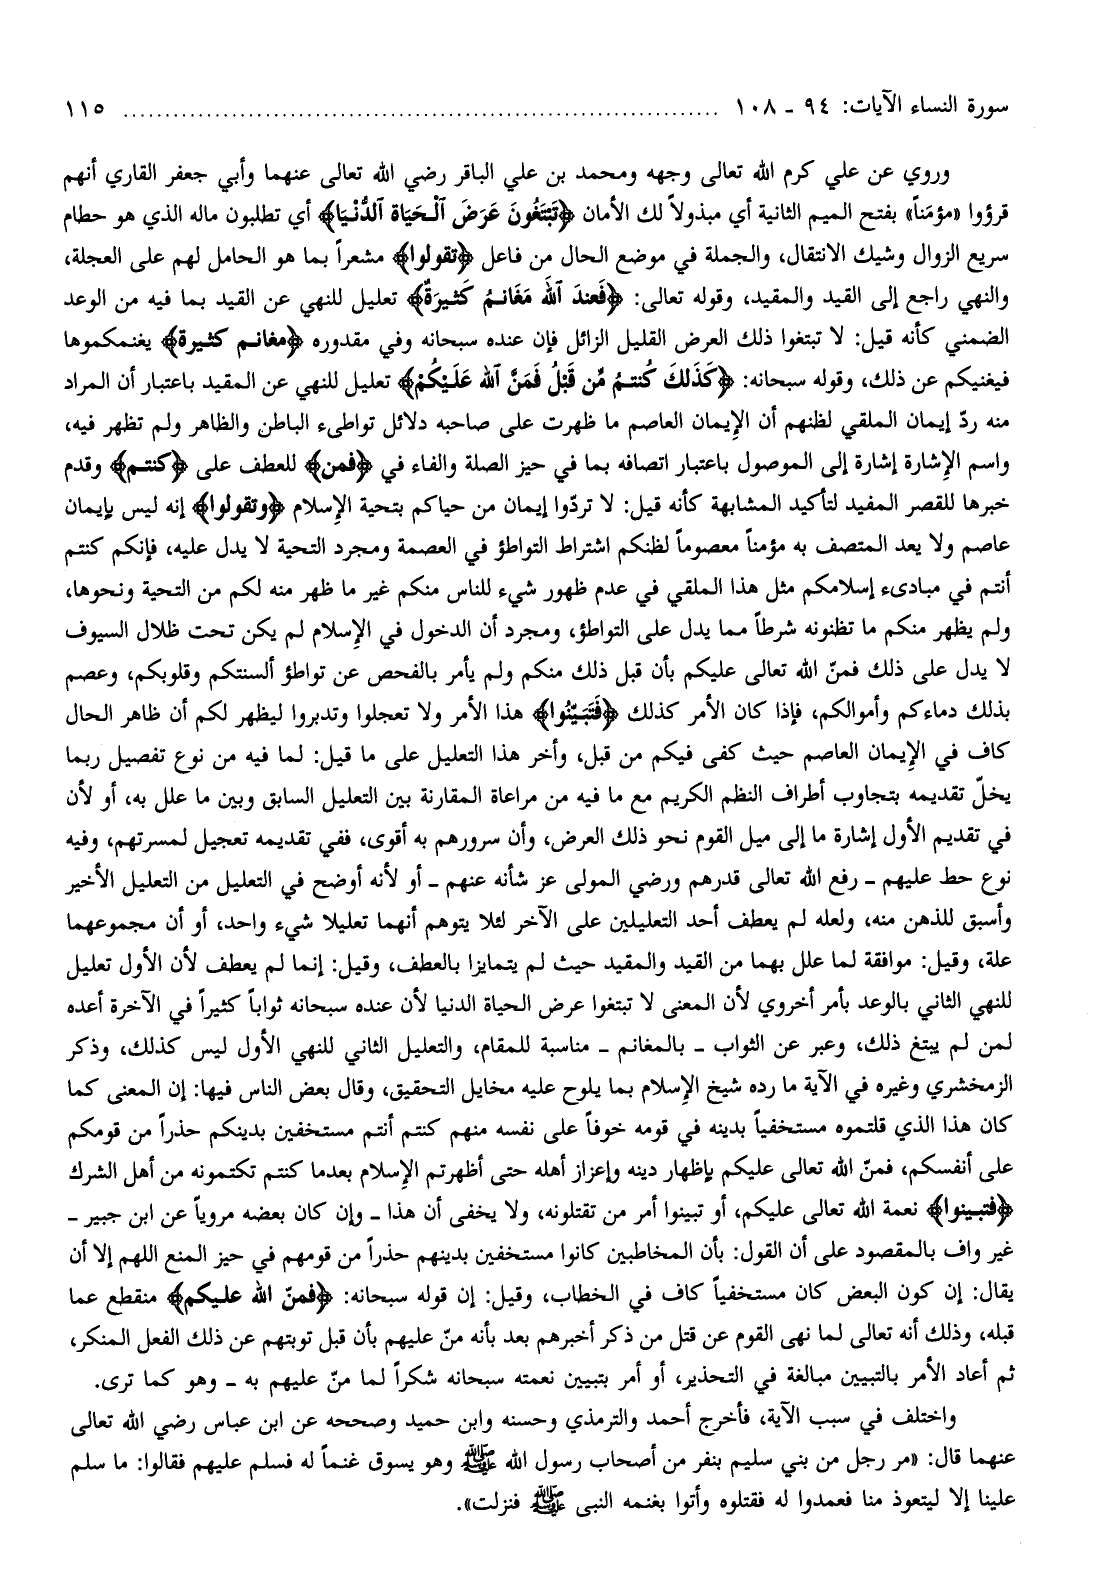 سورة النساء الآيات: ٩٤ ـ ١٠٨ ........................................................................ ١١٥
وروي عن علي كرم الله تعالى وجهه ومحمد بن علي الباقر رضي الله تعالى عنهما وأبي جعفر القاري أنهم
قرؤوا «مؤمَناً» بفتح الميم الثانية أي مبذولاً لك الأمان ﴿تَبْتَغُونَ عَرَضَ ٱلْحَيَاة ٱلدُّنْيَا﴾ أي تطلبون ماله الذي هو حطام
سريع الزوال وشيك الانتقال، والجملة في موضع الحال من فاعل ﴿تقولوا﴾ مشعراً بما هو الحامل لهم على العجلة،
والنهي راجع إلى القيد والمقيد، وقوله تعالى: ﴿فَعندَ ٱلله مَغَانمُ كَثيرَةٌ﴾ تعليل للنهي عن القيد بما فيه من الوعد
الضمني كأنه قيل: لا تبتغوا ذلك العرض القليل الزائل فإن عنده سبحانه وفي مقدوره ﴿مغانم كثيرة﴾ يغنمكموها
فيغنيكم عن ذلك، وقوله سبحانه: ﴿كَذَلكَ كُنتمُ مِّن قَبْلُ فَمَنَّ ٱلله عَلَيْكُمْ﴾ تعليل للنهي عن المقيد باعتبار أن المراد
منه ردّ إيمان الملقي لظنهم أن الإِيمان العاصم ما ظهرت على صاحبه دلائل تواطىء الباطن والظاهر ولم تظهر فيه،
واسم الإِشارة إشارة إلى الموصول باعتبار اتصافه بما في حيز الصلة والفاء في ﴿فمن﴾ للعطف على ﴿كنتم﴾ وقدم
خبرها للقصر المفيد لتأكيد المشابهة كأنه قيل: لا تردّوا إيمان من حياكم بتحية الإِسلام ﴿وتقولوا﴾ إنه ليس بإيمان
عاصم ولا يعد المتصف به مؤمناً معصوماً لظنكم اشتراط التواطؤ في العصمة ومجرد التحية لا يدل عليه، فإنكم كنتم
أنتم في مبادىء إسلامكم مثل هذا الملقي في عدم ظهور شيء للناس منكم غير ما ظهر منه لكم من التحية ونحوها،
ولم يظهر منكم ما تظنونه شرطاً مما يدل على التواطؤ، ومجرد أن الدخول في الإِسلام لم يكن تحت ظلال السيوف
لا يدل على ذلك فمنّ الله تعالى عليكم بأن قبل ذلك منكم ولم يأمر بالفحص عن تواطؤ ألسنتكم وقلوبكم، وعصم
بذلك دماءكم وأموالكم، فإذا كان الأمر كذلك ﴿فَتَبَيَّنُوا﴾ هذا الأمر ولا تعجلوا وتدبروا ليظهر لكم أن ظاهر الحال
كاف في الإِيمان العاصم حيث كفى فيكم من قبل، وأخر هذا التعليل على ما قيل: لما فيه من نوع تفصيل ربما
يخلّ تقديمه بتجاوب أطراف النظم الكريم مع ما فيه من مراعاة المقارنة بين التعليل السابق وبين ما علل به، أو لأن
في تقديم الأول إشارة ما إلى ميل القوم نحو ذلك العرض، وأن سرورهم به أقوى، ففي تقديمه تعجيل لمسرتهم، وفيه
نوع حط عليهم ـ رفع الله تعالى قدرهم ورضي المولى عز شأنه عنهم ـ أو لأنه أوضح في التعليل من التعليل الأخير
وأسبق للذهن منه، ولعله لم يعطف أحد التعليلين على الآخر لئلا يتوهم أنهما تعليلا شيء واحد، أو أن مجموعهما
علة، وقيل: موافقة لما علل بهما من القيد والمقيد حيث لم يتمايزا بالعطف، وقيل: إنما لم يعطف لأن الأول تعليل
للنهي الثاني بالوعد بأمر أخروي لأن المعنى لا تبتغوا عرض الحياة الدنيا لأن عنده سبحانه ثواباً كثيراً في الآخرة أعده
لمن لم يبتغ ذلك، وعبر عن الثواب ـ بالمغانم ـ مناسبة للمقام، والتعليل الثاني للنهي الأول ليس كذلك، وذكر
الزمخشري وغيره في الآية ما رده شيخ الإِسلام بما يلوح عليه مخايل التحقيق، وقال بعض الناس فيها: إن المعنى كما
كان هذا الذي قلتموه مستخفياً بدينه في قومه خوفاً على نفسه منهم كنتم أنتم مستخفين بدينكم حذراً من قومكم
على أنفسكم، فمنّ الله تعالى عليكم بإظهار دينه وإعزاز أهله حتى أظهرتم الإِسلام بعدما كنتم تكتمونه من أهل الشرك
﴿فتبينوا﴾ نعمة الله تعالى عليكم، أو تبينوا أمر من تقتلونه، ولا يخفى أن هذا ـ وإن كان بعضه مروياً عن ابن جبير ـ
غير واف بالمقصود على أن القول: بأن المخاطبين كانوا مستخفين بدينهم حذراً من قومهم في حيز المنع اللهم إلا أن
يقال: إن كون البعض كان مستخفياً كاف في الخطاب، وقيل: إن قوله سبحانه: ﴿فمنّ الله عليكم﴾ منقطع عما
قبله، وذلك أنه تعالى لما نهى القوم عن قتل من ذكر أخبرهم بعد بأنه منّ عليهم بأن قبل توبتهم عن ذلك الفعل المنكر،
ثم أعاد الأمر بالتبيين مبالغة في التحذير، أو أمر بتبيين نعمته سبحانه شكراً لما منّ عليهم به ـ وهو كما ترى.
واختلف في سبب الآية، فأخرج أحمد والترمذي وحسنه وابن حميد وصححه عن ابن عباس رضي الله تعالى
عنهما قال: «مر رجل من بني سليم بنفر من أصحاب رسول الله ﷺ وهو يسوق غنماً له فسلم عليهم فقالوا: ما سلم
علينا إلا ليتعوذ منا فعمدوا له فقتلوه وأتوا بغنمه النبي ﷺ فنزلت».